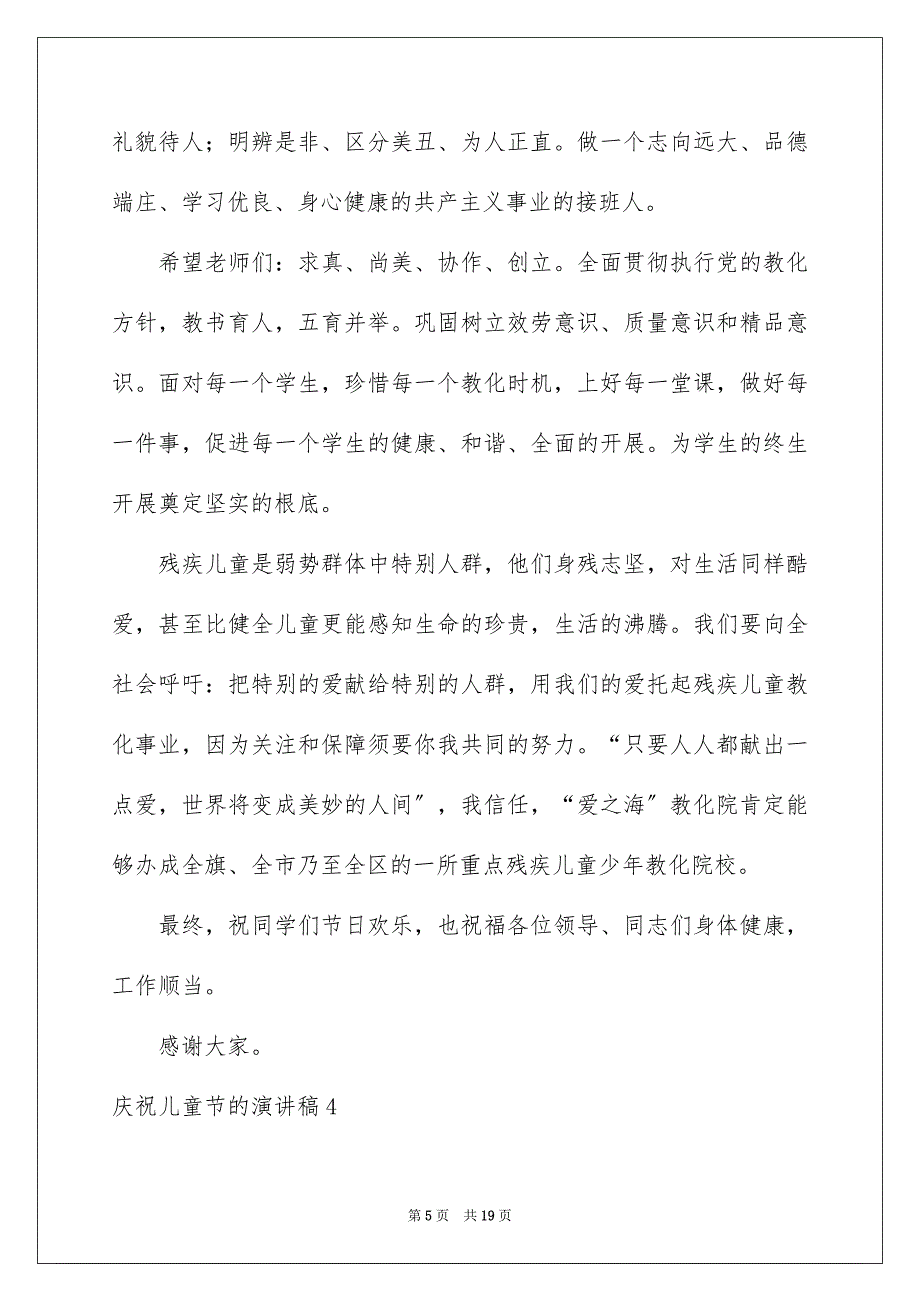 礼貌待人；明辨是非、区分美丑、为人正直。做一个志向远大、品德
端庄、学习优良、身心健康的共产主义事业的接班人。
希望老师们：求真、尚美、协作、创立。全面贯彻执行党的教化
方针，教书育人，五育并举。巩固树立效劳意识、质量意识和精品意
识。面对每一个学生，珍惜每一个教化时机，上好每一堂课，做好每
一件事，促进每一个学生的健康、和谐、全面的开展。为学生的终生
开展奠定坚实的根底。
残疾儿童是弱势群体中特别人群，他们身残志坚，对生活同样酷
爱，甚至比健全儿童更能感知生命的珍贵，生活的沸腾。我们要向全
社会呼吁：把特别的爱献给特别的人群，用我们的爱托起残疾儿童教
化事业，因为关注和保障须要你我共同的努力。“只要人人都献出一
点爱，世界将变成美妙的人间〞，我信任，“爱之海〞教化院肯定能
够办成全旗、全市乃至全区的一所重点残疾儿童少年教化院校。
最终，祝同学们节日欢乐，也祝福各位领导、同志们身体健康，
工作顺当。
感谢大家。
庆祝儿童节的演讲稿 4
第 5 页 共 19 页